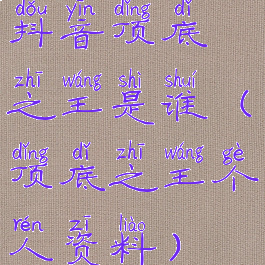 dǒu yīn dǐng dǐ
抖音顶底
zhī wáng shì shuí
之王是谁（
dǐng dǐ zhī wáng gè
顶底之王个
rén zī liào
人资料）